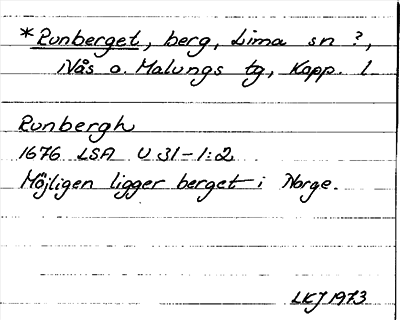 *Runberget, berg, Lima sn ?,
Nås o. Malungs tg, Kopp. l
Runbergh
1676 LSA U 31-1:2
Möjligen ligger berget i Norge.
LKJ 1973